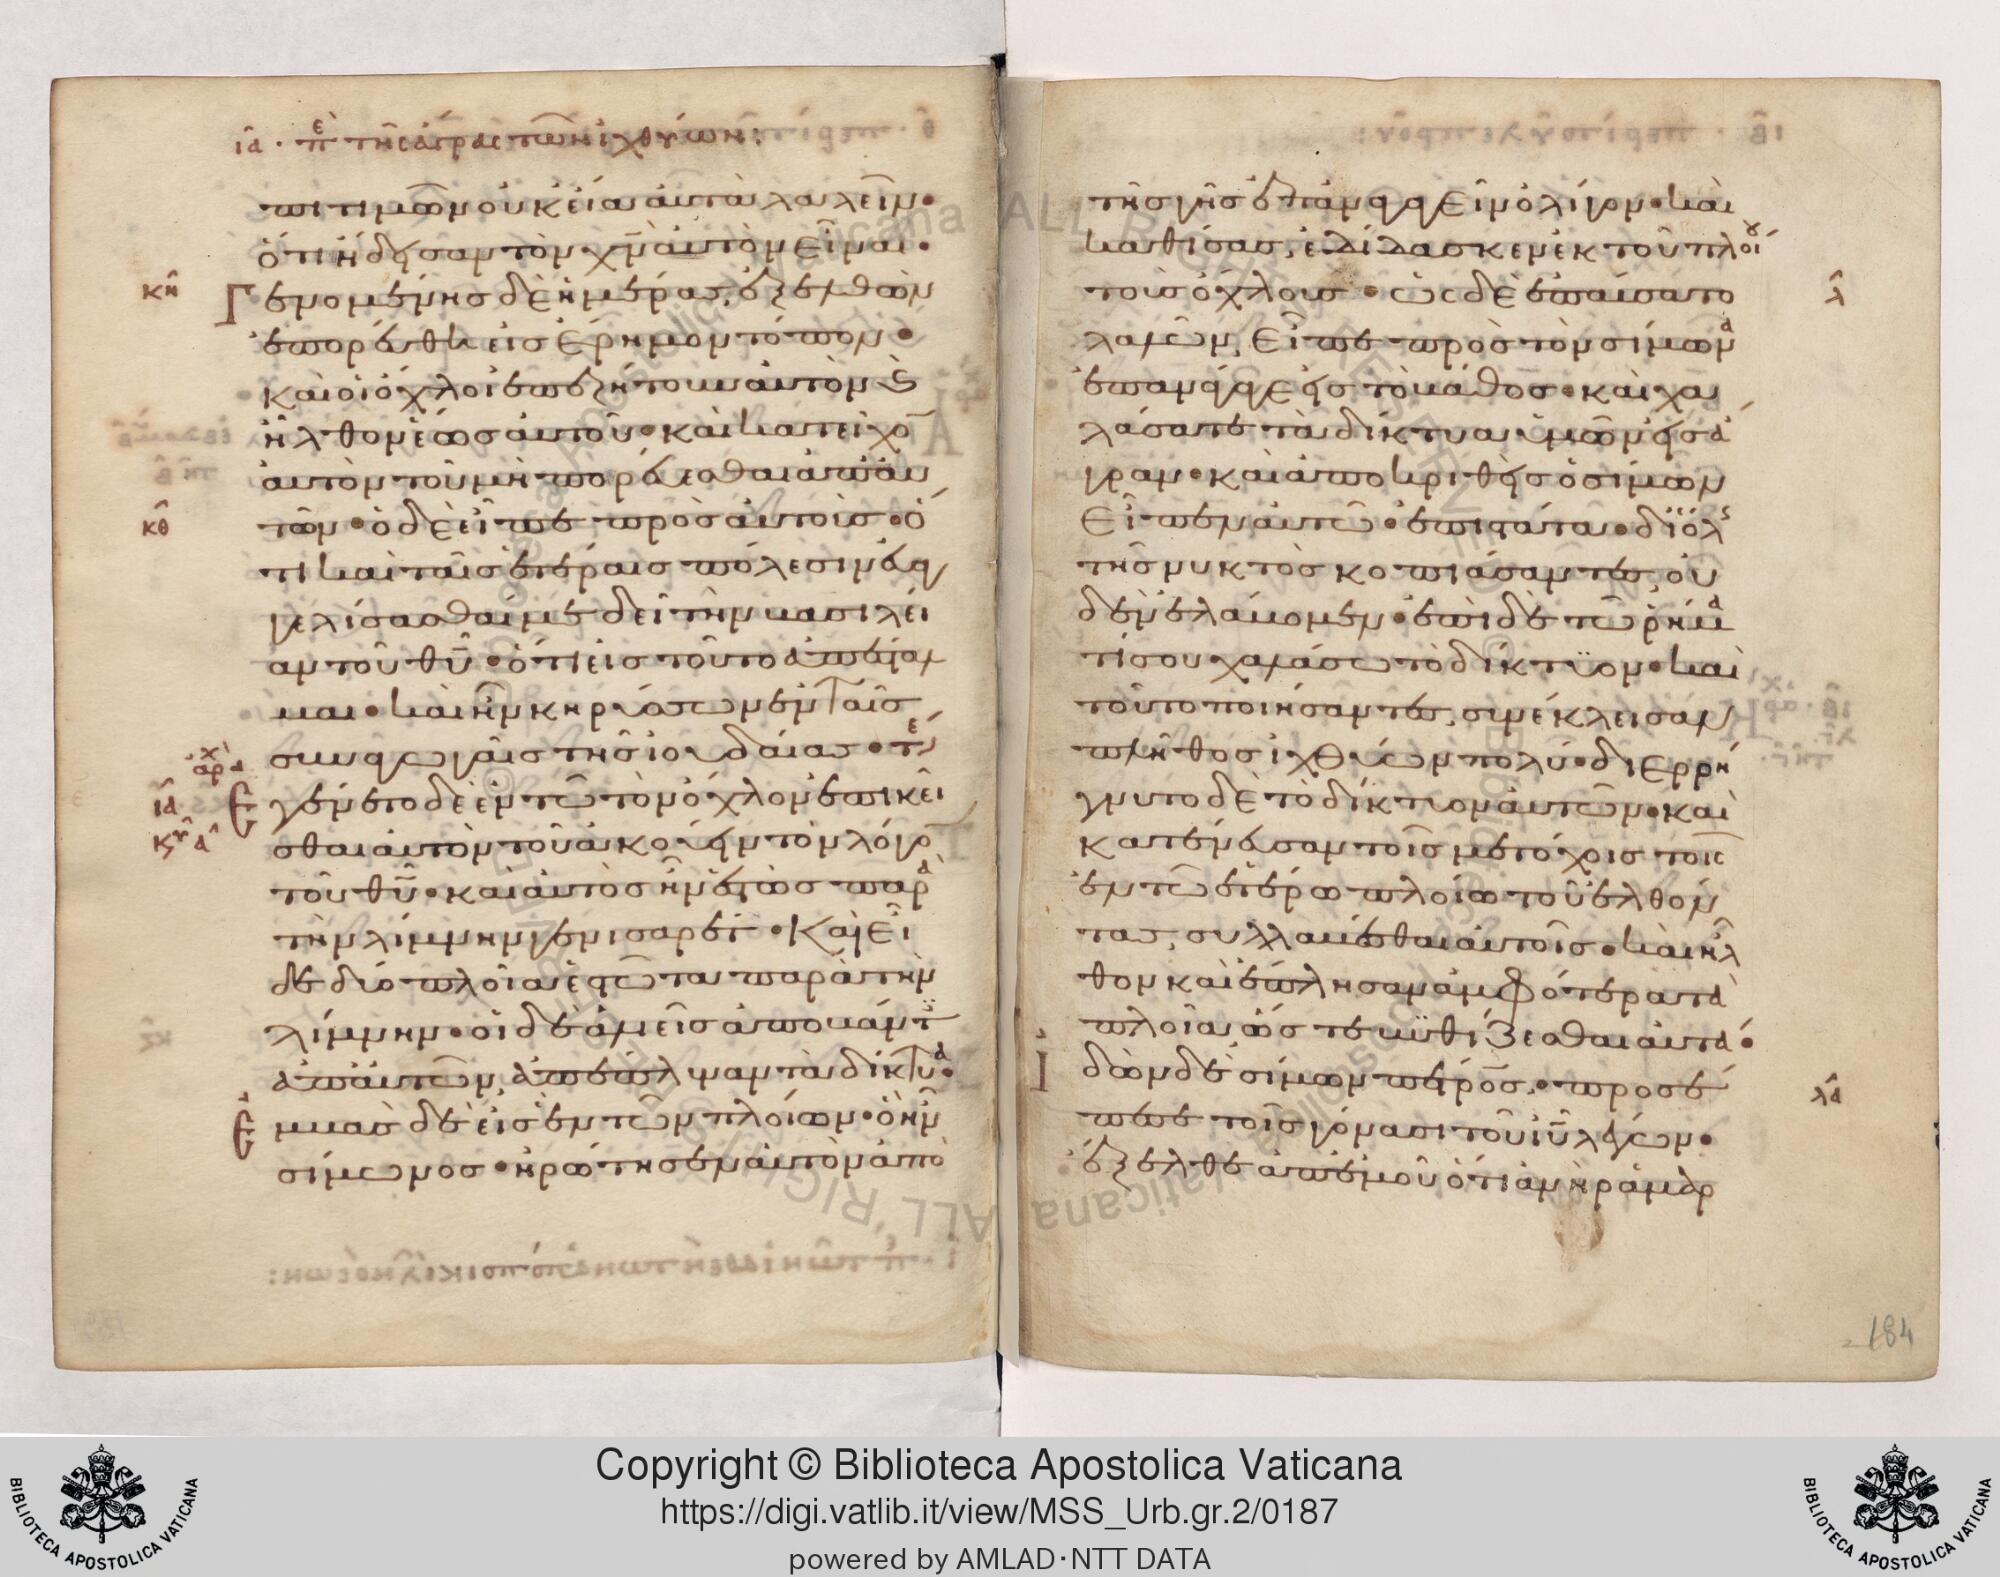 ια · πε τῆς ἄγρας τῶν ἰχθύων :
πιτιμῶν οὐκ εἴα αὐτὰ λαλεῖν•
ὅτι ἤδεισαν τὸν χν αὐτὸν εἶναι•
κη Γενομένης δὲ ἡμέρας, ἐξελθὼν
ἐπορεύθη εἰς ἔρημον τόπον•
καὶ οἱ ὄχλοι ἐπεζήτουν αὐτὸν ϗ
ἦλθον ἕως αὐτοῦ• καὶ κατεῖχο
αὐτὸν τοῦ μὴ πορεύεσθαι ἀπ' αὐ
κθ τῶν• ὁ δὲ εἶπε πρὸς αὐτοὺς• ὅ
τι καὶ ταῖς ἑτέραις πόλεσιν εὐαγ
γελίσασθαί με δεῖ τὴν βασιλεί
αν τοῦ θυ• ὅτι εἰς τοῦτο ἀπέσταλ
μαι• καὶ ἦν κηρύσσων ἐν ταῖς
συναγωγαῖς τῆς ἰουδαίας• τε
αρχ
ια Ἐγένετο δὲ ἐν τῶ τὸν ὄχλον ἐπικεῖ
κυ α σθαι αὐτὸν τοῦ ἀκούειν τὸν λόγο
τοῦ θυ• καὶ αὐτὸς ἦν ἑστὼς παρὰ
τὴν λίμνην γεννισαρέτ• Καὶ εἶ
δε δύο πλοῖα ἑστῶτα παρὰ τὴν
λίμνην• οἱ δὲ ἁλιεῖς ἀποβάντ
ἀπ' αὐτῶν, ἀπέπλυναν τὰ δίκτυα•
Ἐμβὰς δὲ εἰς ἓν τῶν πλοίων• ὃ ἦν
σίμωνος• ἠρώτησεν αὐτὸν ἀπὸ
τῆς γῆς ἐπαναγαγεῖν ὀλίγον• καὶ
καθίσας, ἐδίδασκεν ἐκ τοῦ πλοίου
τοὺς ὄχλους• ὡς δὲ ἐπαύσατο λ
λαλῶν, εἶπε πρὸς τὸν σίμωνα
ἐπανάγαγε εἰς τὸ βάθος• καὶ χα
λάσατε τὰ δίκτυα ὑμῶν εἰς ἄ
γραν• καὶ ἀποκριθεὶς ὁ σίμων
εἶπεν αὐτῶ• ἐπιστάτα• δι' ὅλης
τῆς νυκτὸς κοπιάσαντες, οὐ
δὲν ἐλάβομεν• ἐπὶ δὲ τῶ ῥήμα
τί σου χαλάσω τὸ δίκτυον• καὶ
τοῦτο ποιήσαντες, συνέκλεισαν
πλῆθος ἰχθύων πολύ• διερρή
γνυτο δὲ τὸ δίκτυον αὐτῶν• καὶ
κατένευσαν τοῖς μετόχοις τοῖς
ἐν τῶ ἑτέρω πλοίω τοῦ ἐλθόν
τας, συλλαβέσθαι αὐτοῖς• καὶ ἦλ
θον καὶ ἔπλησαν ἀμφότερα τὰ
πλοῖα, ὥστε βυθίζεσθαι αὐτά•
Ἰδὼν δὲ σίμων πέτρος,• προσέ
πεσε τοῖς γόνασι τοῦ ιυ λέγων• λα
ἔξελθε ἀπ' ἐμοῦ ὅτι ἀνὴρ ἁμαρ
184
Copyright © Biblioteca Apostolica Vaticana
https://digi.vatlib.it/view/MSS_Urb.gr.2/0187
powered by AMLAD·NTT DATA
BIBLIOTECA APOSTOLICA VATICANA
BIBLIOTECA APOSTOLICA VATICANA